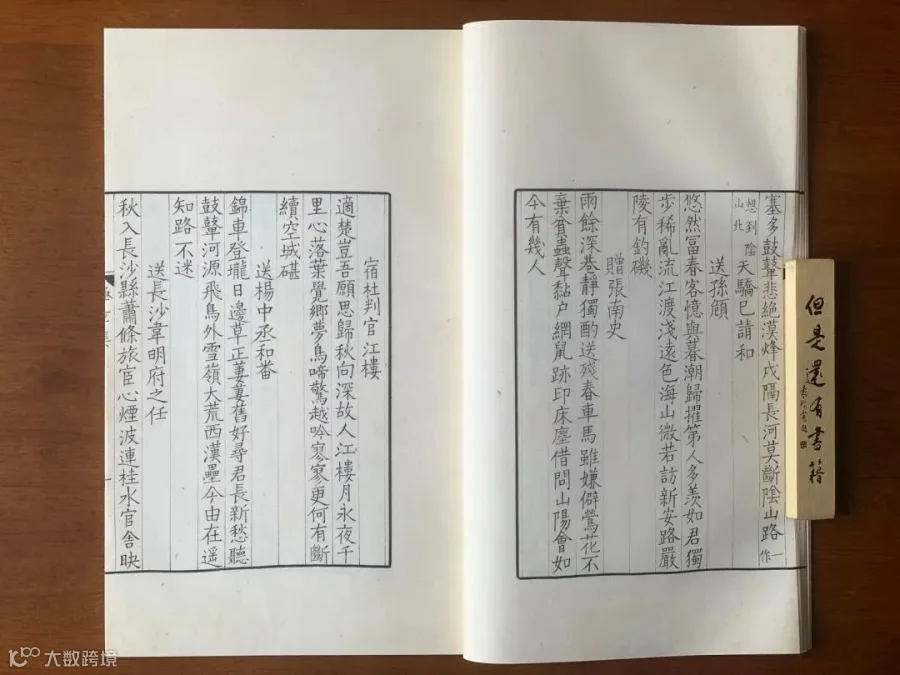 塞多鼓鼙悲絕漠烽戍隔長河莫斷陰山路一作
想到陰山北天驕已請和
送孫頎
悠然富春客憶與暮潮歸擢第人多羨如君獨
步稀亂流江渡淺遠色海山微若訪新安路嚴
陵有釣磯
贈張南史
雨餘深巷靜獨酌送殘春車馬雖嫌僻鶯花不
棄貧蟲聲黏户網鼠跡印床塵借問山陽會如
今有幾人
宿杜判官江樓
適楚豈吾願思歸秋向深故人江樓月永夜千
里心落葉覺鄉夢鳥啼驚越吟寥寥更何有斷
續空城碪
送楊中丞和蕃
錦車登隴日邊草正萋萋舊好尋君長新愁聽
鼓鼙河源飛鳥外雪嶺大荒西漢壘今由在遥
知路不迷
送長沙韋明府之任
秋入長沙縣蕭條旅宦心煙波連桂水官舍映
但是還有書籍
大数跨境